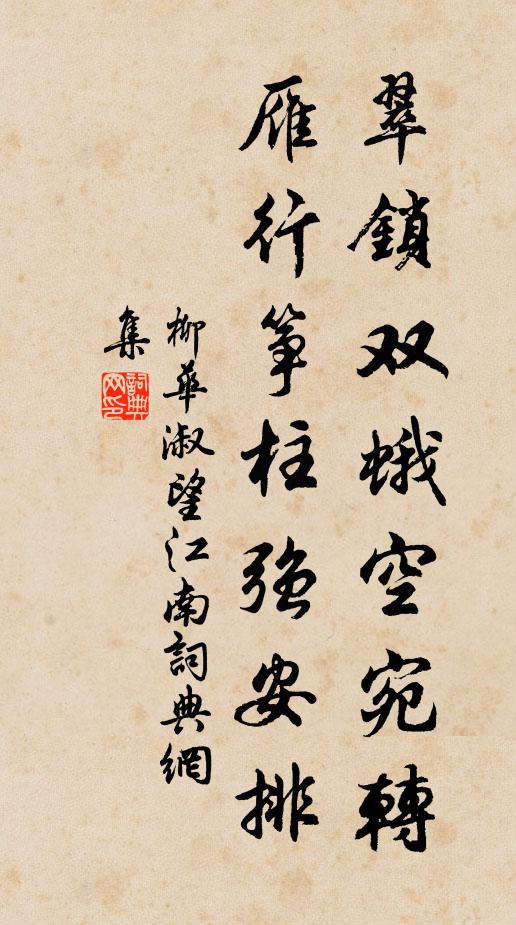 翠鎖双蛾空宛轉
雁行箏柱強安排
柳華淑望江南詞典網
集
詞典
网印